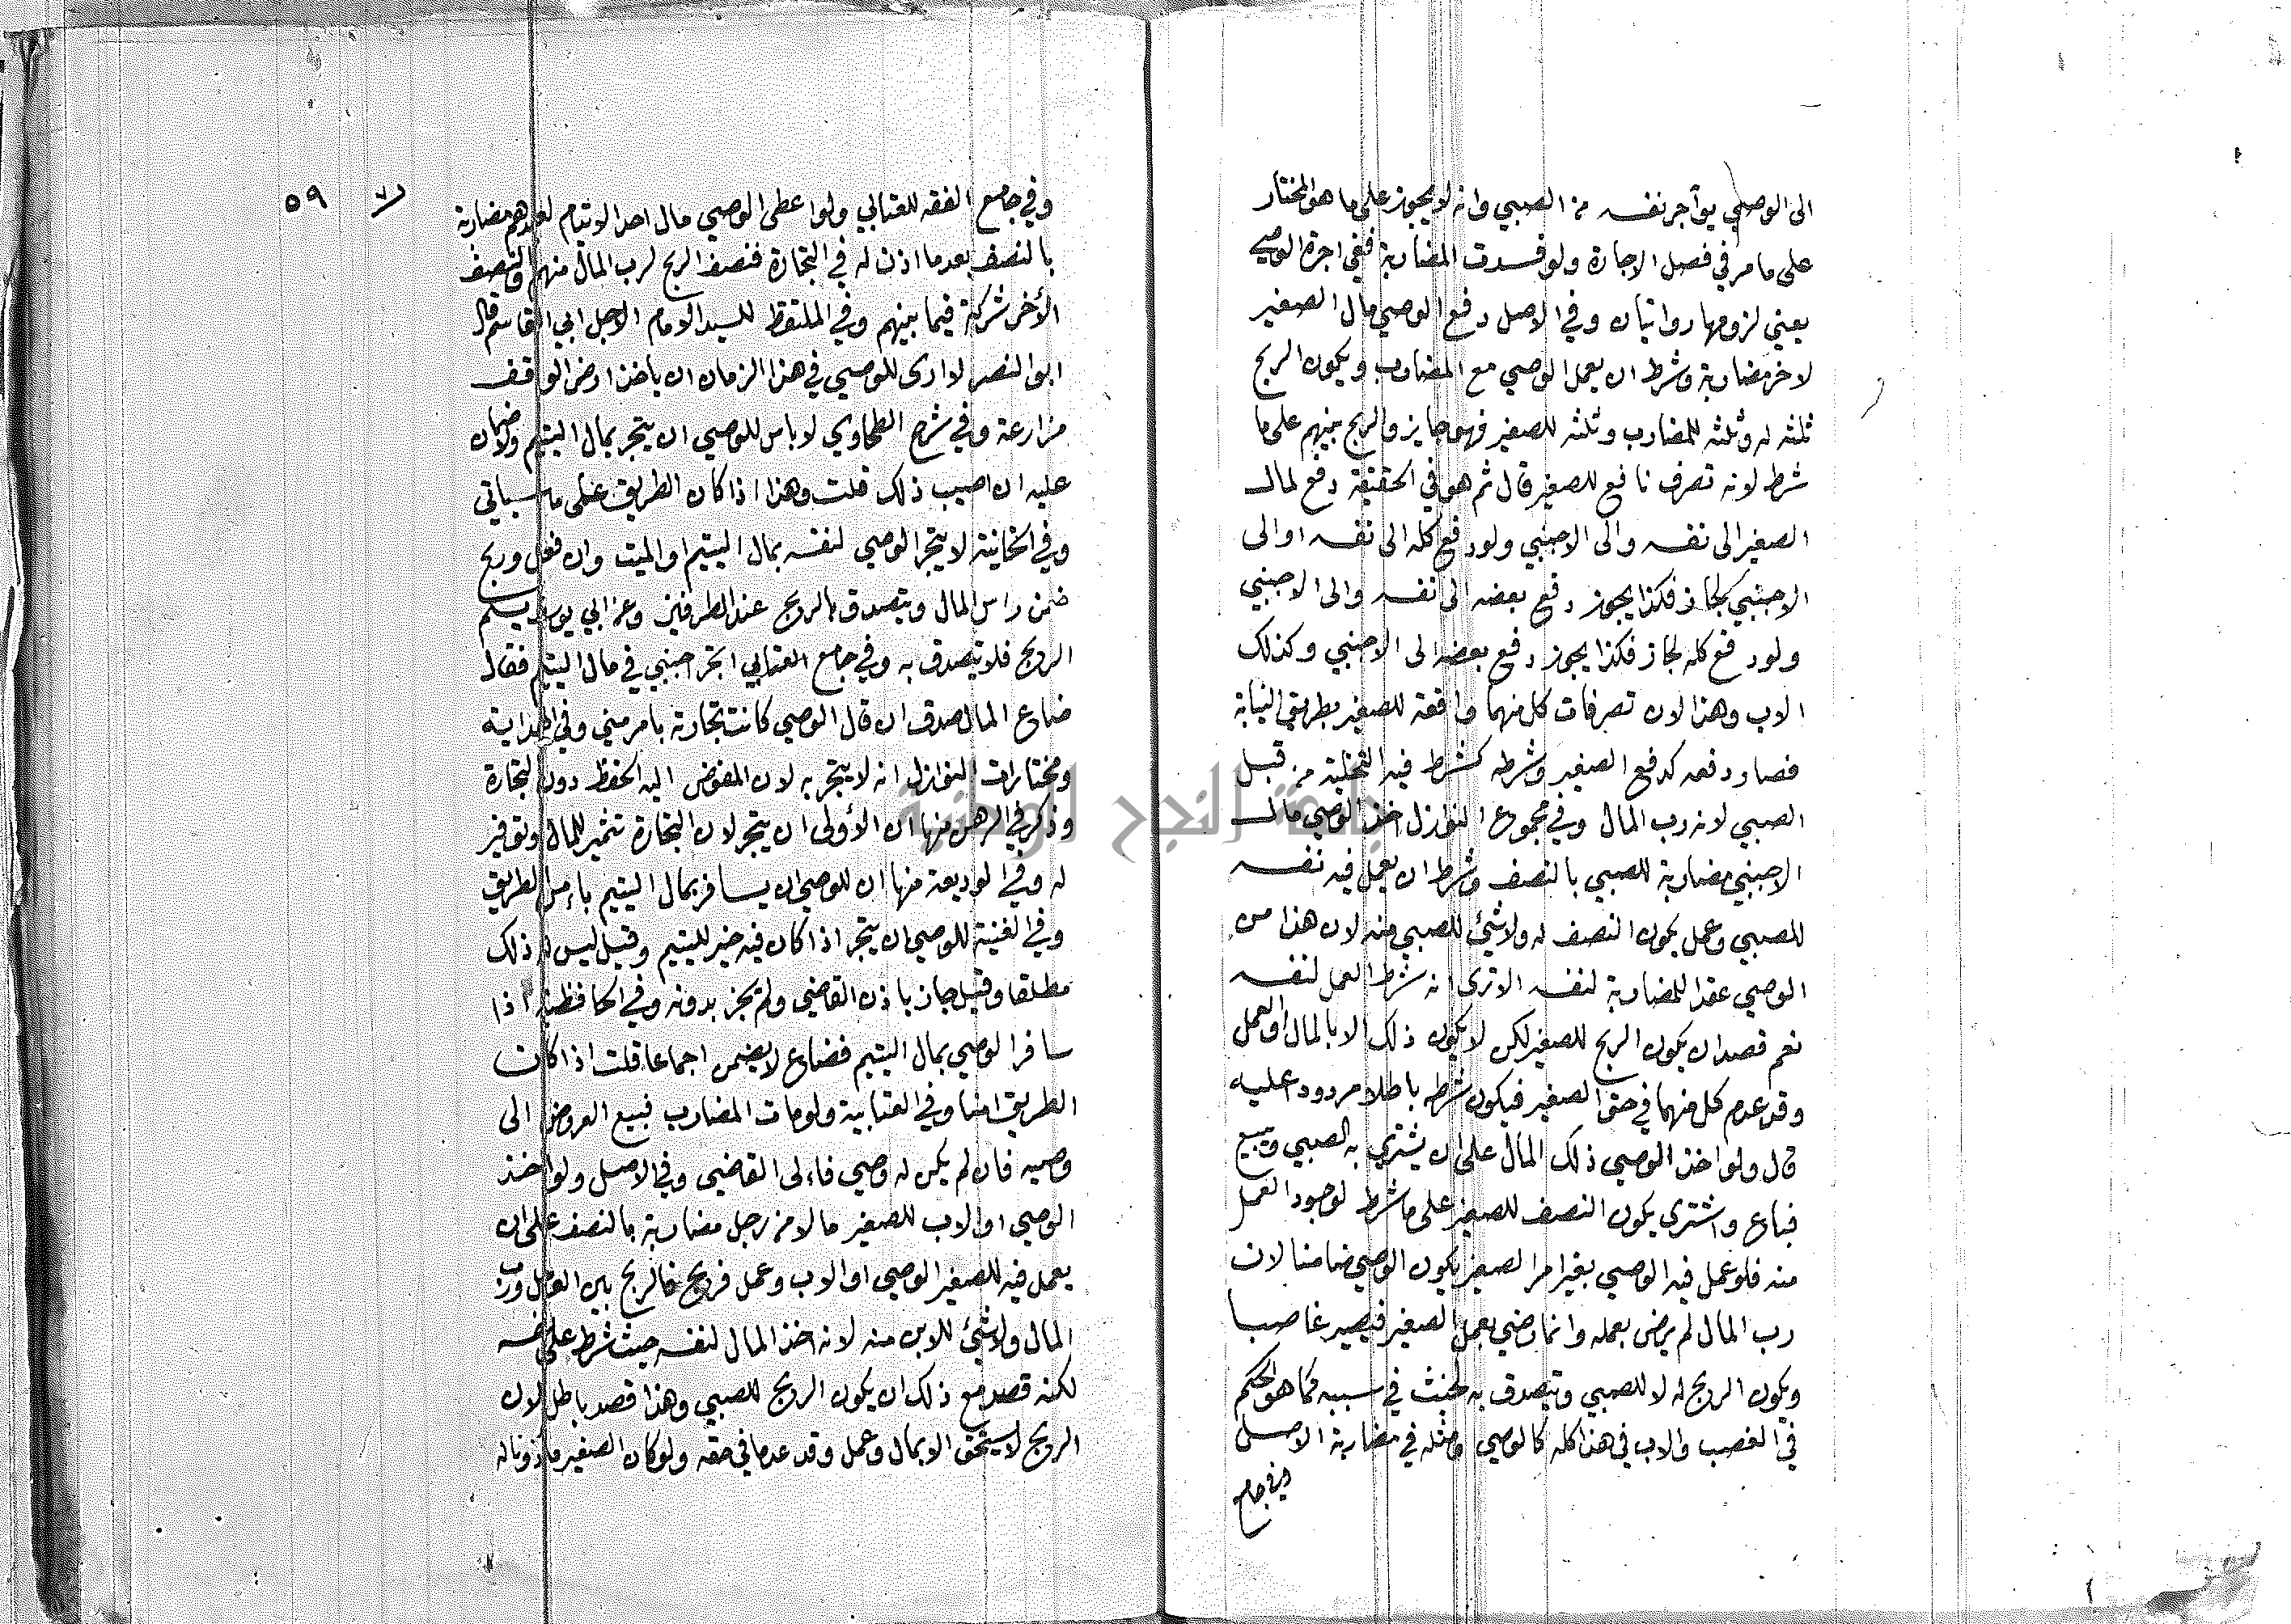 الى الوصي يوآجر نفسه من الصبي وانه لا يجوز على ما هو المختار
على ما مر في فصل الاجارة ولو فسدت المضاربة ففي اجرة الوصي
يعني لزومها روايتان وفي الاصل دفع الوصي مال الصغير
لاخر مضاربة وشرط ان يعمل الوصي مع المضارب ويكون الربح
ثلثه له وثلثه للمضارب وثلثه للصغير فهو جايز والربح بينهم على ما
شرط لانه تصرف نافع للصغير قال ثم هو في الحقيقة دفع لمال
الصغير الى نفسه والى الاجنبي ولو دفع كله الى نفسه او الى
الاجنبي لجاز فكذا يجوز دفع بعضه الى نفسه والى الاجنبي
ولو دفع كله لجاز فكذا يجوز دفع بعضه الى الاجنبي وكذلك
الاب وهذا لان تصرفات كل منهما واقعة للصغير بطريق النيابة
فصار دفعه كدفع الصغير وشرطه كشرط فيه التخلية من قبل
الصبي لانه رب المال وفي مجموع النوازل اخذ الوصي مال
الاجنبي مضاربة للصبي بالنصف وشرط ان يعمل فيه نفسه
للصبي وعمل يكون النصف له ولا شئ للصبي منه لان هذا من
الوصي عقد المضاربة لنفسه الا ترى انه شرط العمل لنفسه
نعم قصد ان يكون الربح للصغير لكن لا يكون ذلك الا بالمال او العمل
وقد عدم كل منهما في حق الصغير فيكون شرطه باطلا مردود عليه
قال ولو اخذ الوصي ذلك المال على ان يشتري به الصبي ويبيع
فباع واشتري يكون النصف للصغير على ما شرط لوجود العمل
منه فلو عمل فيه الوصي بغير امر الصغير يكون الوصي ضامنا لان
رب المال لم يرض بعمله وانما رضي بعمل الصغير فيصير غاصبا
ويكون الربح له لا للصبي ويتصدق به لخبث في سببه كما هو الحكم
في الغصب والاب في هذا كله كالوصي ومثله في مضاربة الاصل
وفي جامع
٥٩
وفي جامع الفقه للعتابي ولو اعطى الوصي مال احد الايتام لبعضهم مضاربة
بالنصف بعدما اذن له في التجارة فنصف الربح لرب المال منهم والنصف
الأخر شركة فيما بينهم وفي الملتقط للسيد الامام الاجل ابي القاسم قال
ابو النصر لا ارى للوصي في هذا الزمان ان ياخذ ارض الواقف
مزارعة وفي شرح الطحاوي لا باس للوصي ان يتجر بمال اليتيم ولا ضمان
عليه ان اصيب ذلك قلت وهذا اذا كان الطريق على ما سياتي
وفي الخانية لا يتجر الوصي لنفسه بمال اليتيم او الميت وان فعل وربح
ضمن راس المال ويتصدق بالربح عند الطرفين وعن ابي يوسف يسلم
الربح فلا يتصدق به وفي جامع العتابي اتجر اجنبي في مال اليتيم فقال
ضاع المال صدق ان قال الوصي كانت تجارته بامر مني وفي الهداية
ومختارات النوازل انه لا يتجر به لان المفوض اليه الحفظ دون التجارة
وذكر في الرهن منها ان الأولى ان يتجر لان التجارة تثمير للمال وتوفير
له وفي الوديعة منها ان للوصي ان يسافر بمال اليتيم بامن الطريق
وفي الغنية للوصي ان يتجر اذا كان فيه خير لليتيم وقيل ليس له ذلك
مطلقا وقيل جاز باذن القاضي ولم يجز بدونه وفي الحافظية اذا
سافر الوصي بمال اليتيم فضاع لا يضمن اجماعا قلت اذا كان
الطريق امنا وفي العتابية ولو مات المضارب فبيع العروض الى
وصيه فان لم يكن له وصي فالى القاضي وفي الاصل ولو اخذ
الوصي او الاب للصغير مالا من رجل مضاربة بالنصف على ان
يعمل فيه للصغير الوصي او الاب وعمل فربح فالربح بين العامل ورب
المال ولا شئ للابن منه لانه اخذ المال لنفسه حيث شرط على نفسه
لكنه قصد مع ذلك ان يكون الربح للصبي وهذا قصد باطل لان
الربح لا يستحق الا بمال وعمل وقد عدما في حقه ولو كان الصغير ماذونا له
جامعة النجاح الوطنية